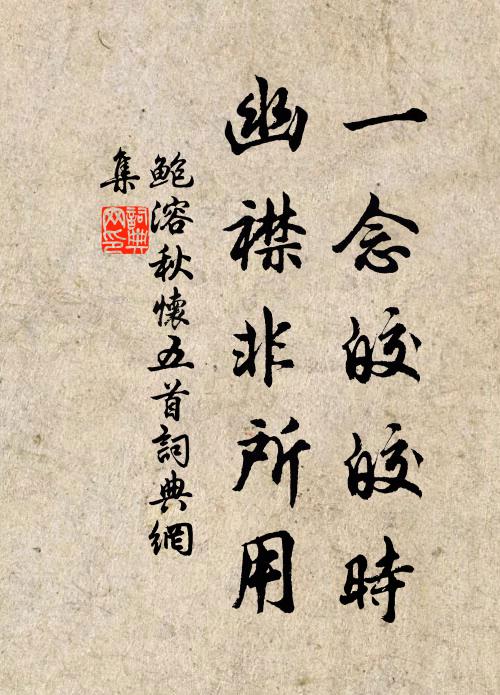 一念皎皎時
幽襟非所用
鲍溶秋懷五首詞典網
集
詞典网印